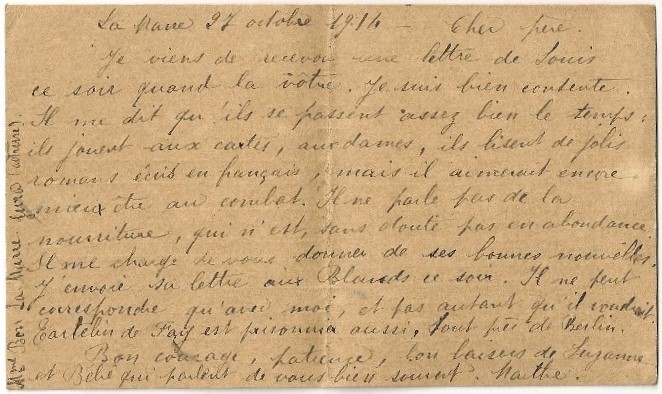 La Marre 27 octobre 1914 - Cher père.
Je viens de recevoir une lettre de Louis
ce soir quand la vôtre. Je suis bien contente.
Il me dit qu'ils se passent assez bien le temps,
ils jouent aux cartes, aux dames, ils lisent de jolis
romans écris en français, mais il aimerait encore
mieux être au combat. Il ne parle pas de la
nourriture, qui n'est, sans doute pas en abondance
Il me charge de vous donner de ses bonnes nouvelles.
J'envoie sa lettre aux Blands ce soir. Il ne peut
correspondre qu'avec moi, et pas autant qu'il voudrait.
de Fay est prisonnier aussi, tout près de Berlin.
Bon courage, patience, bon baisers de Suzanne
et Bébé qui parlent de vous bien souvent. Marthe.
Mme Bon La Marre Jura